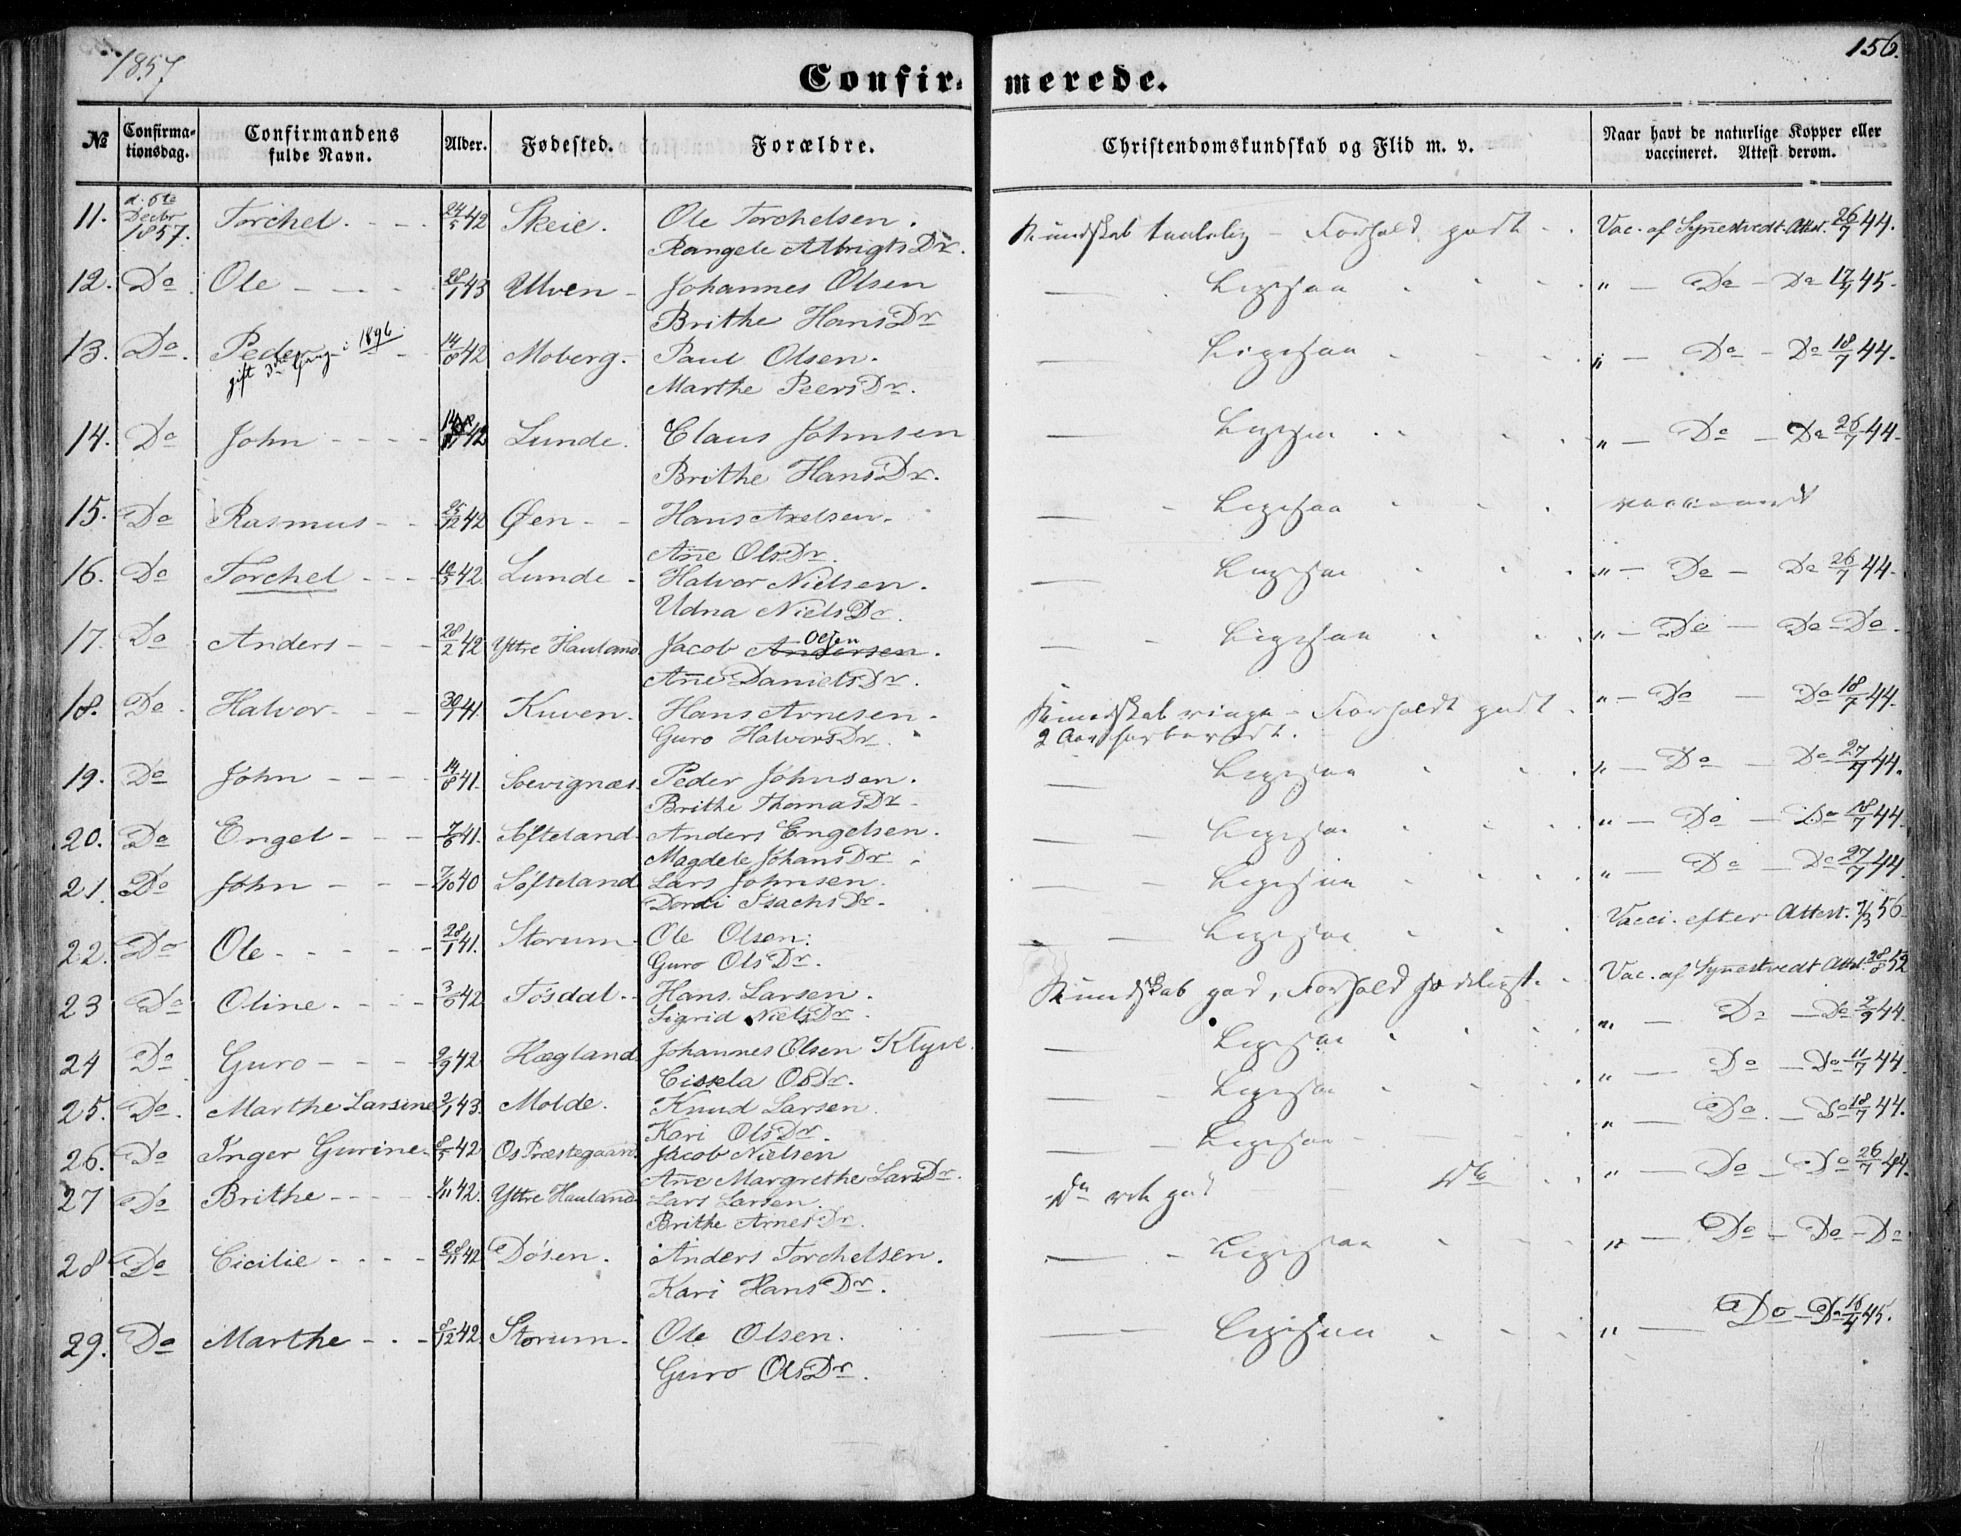 1857
156.
Confir= merede.
№ Confirma-tionsdag. Confirmandens fulde Navn. Alder. Fødested. Forældre. Christendomskundskab og Flid m. v. Naar havt de naturlige Kopper eller vaccineret. Attest derom.
11. d. 6te Decbr 1857. Torchel. 24/5 42 Skeie. Ole Torchelsen. Kundskab taalelig - Forhold godt Vac. af Synestvedt Attst. 26/7 44.
Rangele Albrigts Dr.
12. Do Ole 28/1 43 Ulven Johannes Olsen Ligesaa " Do Do 17/9 45.
Brithe Hans Dr
13. Do. Peder 14/8 42 Moberg. Paul Olsen. Ligesaa " Do Do 18/7 44.
gift 3die Gang i 1896
Marthe Peers Dr.
14. Do John 42 Lunde. Claus Johnsen Ligesaa " Do Do 26/7 44.
Brithe Hans Dr.
15. Do Rasmus 25/12 42 Øen Hans Axelsen. Ligesaa
Ane Ols Dr.
16. Do Torchel 42 Lunde Halvor Nielsen. Ligesaa " Do Do 26/7 44.
Udna Niels Dr.
17. Do Anders 28/2 42 Yttre Hauland Jacob Andersen Olsen. Ligesaa " Do Do Do
Ane Daniels Dr.
18. Do Halvor 30/7 41. Kuven. Hans Arnesen. Kundskab ringe - Forholdt godt " Do Do 18/7 44.
Guro Halvors Dr. 2 Aar forberedt.
19. Do John 14/8 41. Soevignæs Peder Johnsen. Ligesaa " Do Do 27/7 44.
Brithe Thomas Dr
20. Do Engel 7/6 41. Softeland Anders Engelsen. Ligesaa " Do Do 18/7 44.
Magdele Johans Dr
21. Do John 7/10 40 Softeland Lars Johnsen. Ligesaa " Do Do 27/7 44.
Dordi Isachs Dr.
22. Do Ole 28/1 41. Storum Ole Olsen. Ligesaa Vacci. efter Attest. 7/3 56
Guro Ols Dr.
23 Do Oline 3/6 42 Tøsdal. Hans Larsen. Kundskab god, Forhold sædeligt. Vac. af Synestvedt Attst. 28/8 52
Sigrid Niels Dr.
24 Do Guro 9/9 42 Hægland Johannes Olsen Klyve. Ligesaa " Do Do 2/9 44.
Cissela Ols Dr.
25. Do. Marthe Larsine 2/1 43. Molde. Knud Larsen. Ligesaa " Do Do 11/7 44.
Kari Ols Dr.
26. Do Inger Gurine 42 Os Præstegaard Jacob Nielsen Ligesaa " Do Do 18/7 44.
Ane Margrethe Lars Dr.
27 Do Brithe 42. Yttre Hauland Lars Larsen. god Do " Do Do 26/7 44.
Brithe Arnes Dr.
28 Do Cicilie 28/11 42 Døsen. Anders Torchelsen. Ligesaa " Do Do Do
Kari Hans Dr.
29. Do Marthe 8/12 42. Storum Ole Olsen. Ligesaa " Do Do 45.
Guro Ols Dr.